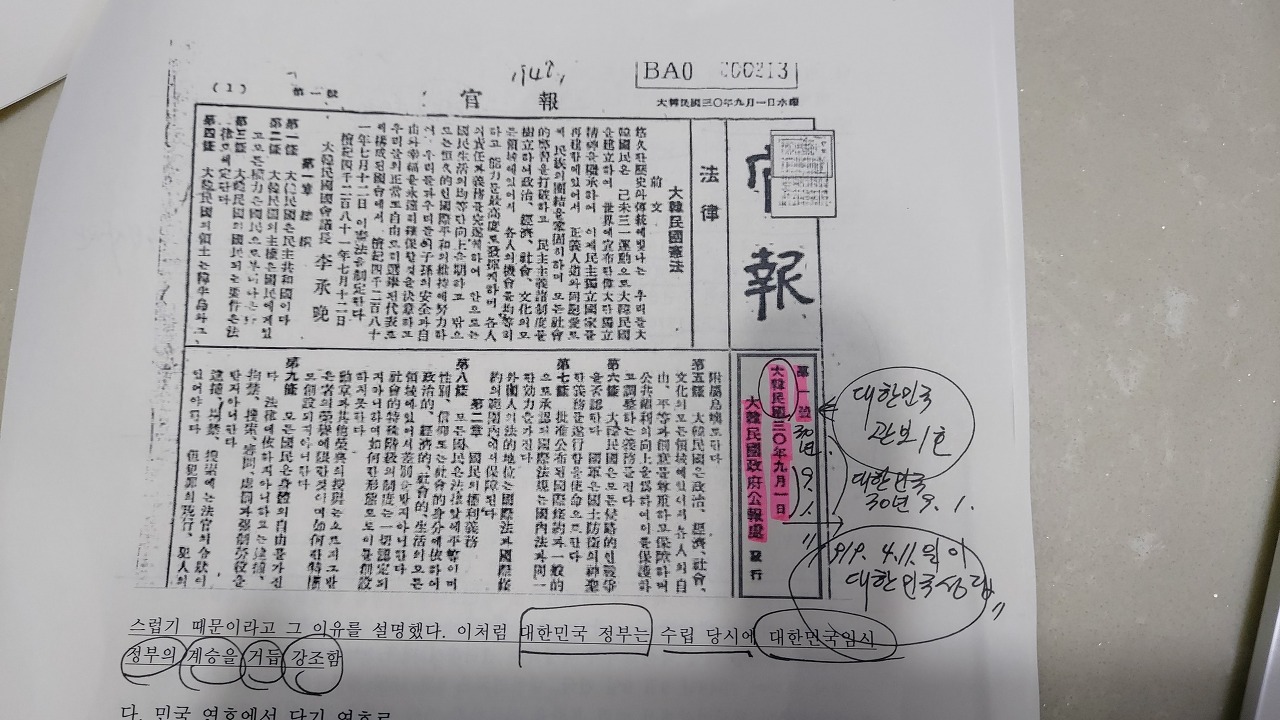 1948,
BA0 000213
(1)
第一號
官報
大韓民國三〇年九月一日水曜
官報
第一號
大韓民國三〇年九月一日
大韓民國政府公報處 發行
30년
9.
1.
法律
大韓民國憲法
前文
悠久한歷史와傳統에빛나는 우리들大
韓國民은 己未三一運動으로大韓民國
을建立하여 世界에宣布한偉大한獨立
精神을繼承하여 이제民主獨立國家를
再建함에있어서 正義人道와同胞愛로
써 民族의團結을鞏固히하며모든社會
的弊習을打破하고 民主主義諸制度를
樹立하여政治, 經濟, 社會, 文化의모
든領域에있어서 各人의機會를均等히
하고 能力을最高度로發揮케하며 各人
의責任과義務를完遂케하여 안으로는
國民生活의均等한向上을期하고 밖으
로는恒久的인國際平和의維持에努力하
여 우리들과우리들의子孫의安全과自
由와幸福을永遠히確保할것을決意하고
우리들의正當또自由로히選擧된代表로
써構成된國會에서 檀紀四千二百八十
一年七月十二日 이憲法을制定한다
檀紀四千二百八十一年七月十二日
大韓民國國會議長 李承晩
第一章 總綱
第一條 大韓民國은民主共和國이다
第二條 大韓民國의主權은國民에게있
고모든權力은國民으로부터나온다
第三條 大韓民國의國民되는要件은法
律로써定한다
第四條 大韓民國의領土는韓半島와그
附屬島嶼로한다
第五條 大韓民國은政治, 經濟, 社會,
文化의모든領域에있어서各人의自
由, 平等과創意를尊重하고保障하며
公共福利의向上을爲하여이를保護하
고調整하는義務를진다
第六條 大韓民國은모든侵略的인戰爭
을否認한다 國軍은國土防衛의神聖
한義務를遂行함을使命으로한다
第七條 批准公布된國際條約과一般的
으로承認된國際法規는國內法과同一
한效力을가진다
外國人의法的地位는國際法과國際條
約의範圍內에서保障된다
第二章 國民의權利義務
第八條 모든國民은法律앞에平等이며
性別, 信仰또는社會的身分에依하여
政治的, 經濟的, 社會的, 生活의모든
領域에있어서差別을받지아니한다
社會的特殊階級의制度는一切認定되
지아니하며如何한形態로도이를創設
하지못한다
勳章과其他榮典의授與는오로지그받
은者의榮譽에限한것이며如何한特權
도創設되지아니한다
第九條 모든國民은身體의自由를가진
다 法律에依하지아니하고는逮捕,
拘禁, 搜索, 審問, 處罰과强制勞役을
받지아니한다
逮捕, 拘禁, 搜索에는法官의令狀이
있어야한다 但犯罪의現行, 犯人의
대한민국
관보 1호
대한민국
30년 9. 1.
1919. 4.11.일이
대한민국
스럽기 때문이라고 그 이유를 설명했다. 이처럼 대한민국 정부는 수립 당시에 대한민국임시
정부의 계승을 거듭 강조함
다. 민국 연호에서 단기 연호로